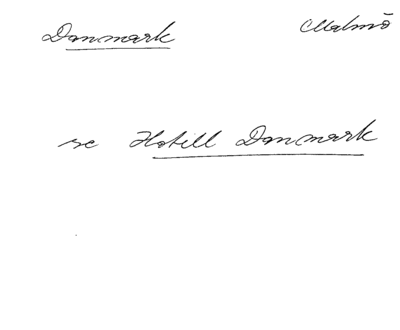 Danmark Malmö
se Hotell Danmark